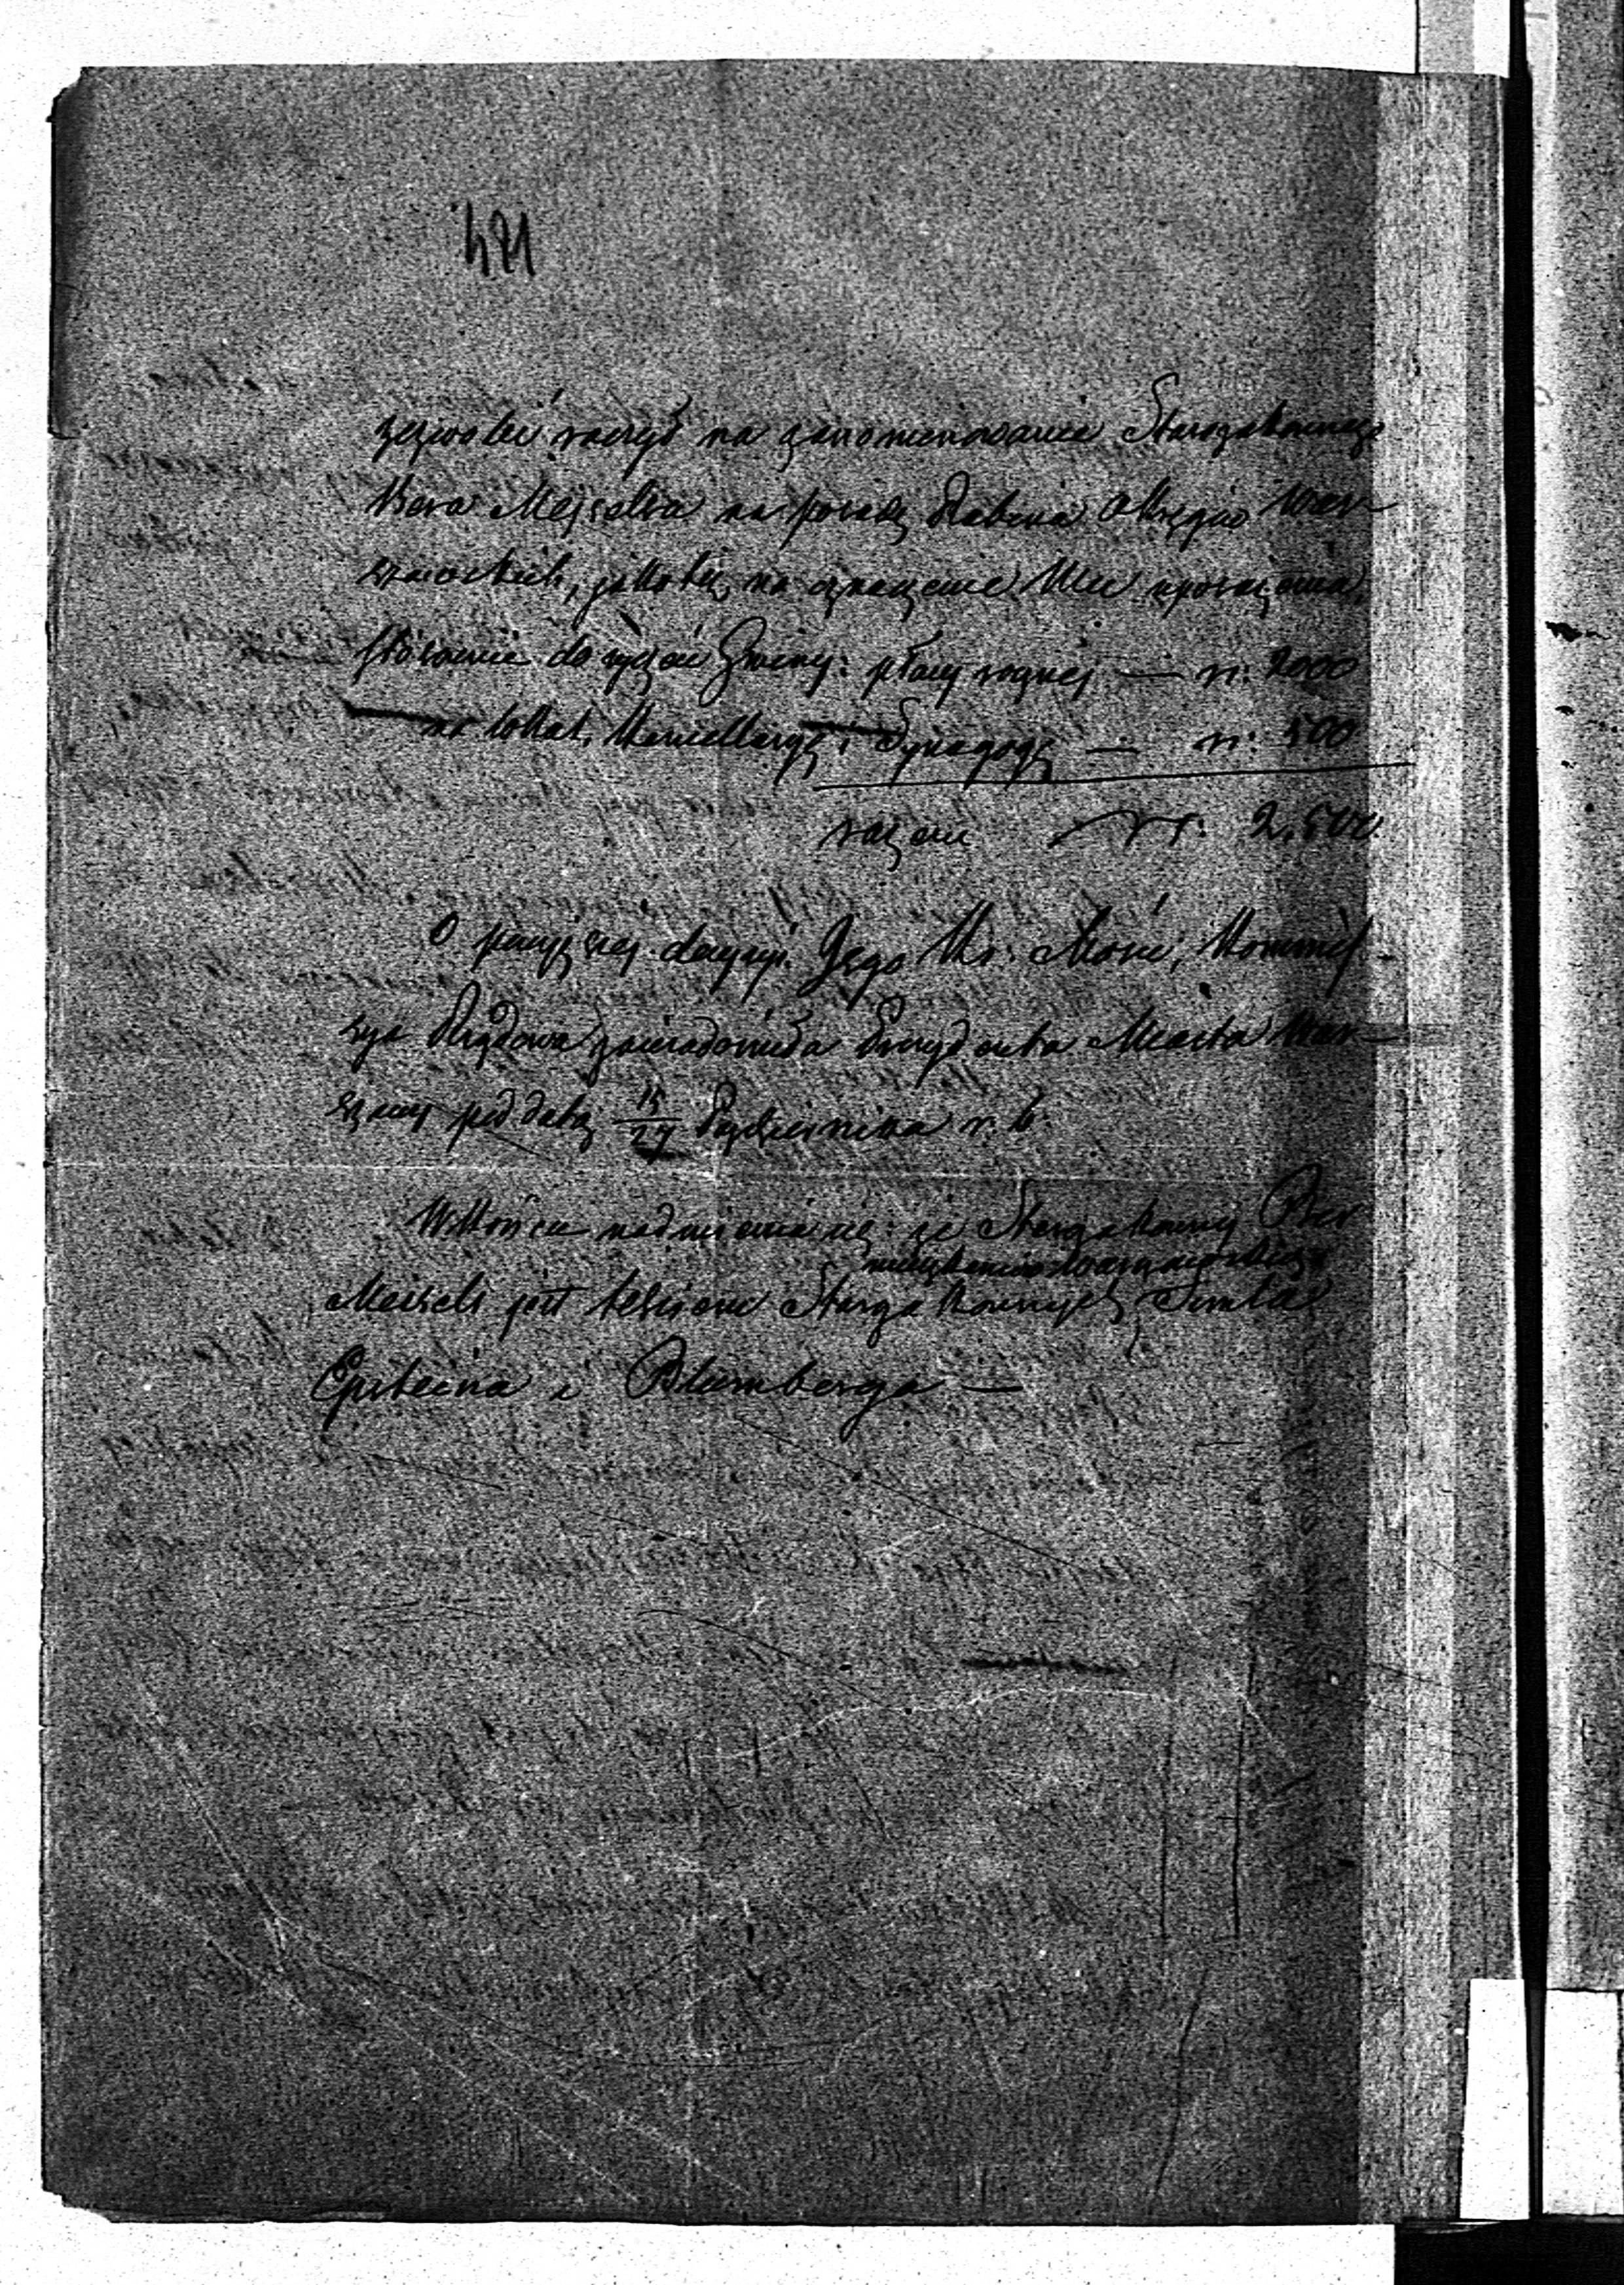 421
zezwolić raczył na zanominowanie Starozakonnego
Bera Mejselsa na posadę Rabina Okręgów War-
szawskich, jakoteż na oznaczenie Mu uposażenia
stosownie do życzeń Gminy: płacy rocznej — rs: 2000
na lokal, Kancellaryę i Synagogę — rs: 500
razem rs. 2,500.
O powyższej decyzyi Jego Kr: Mości, Kommis-
sya Rządowa zawiadomiła Prezydenta Miasta War-
szawy pod datą 15/27 Października r. b.
W końcu nadmienia się: że Starozakonny Ber
Meisels jest teściem Starozakonnych,
Epsteina i Blumberga —